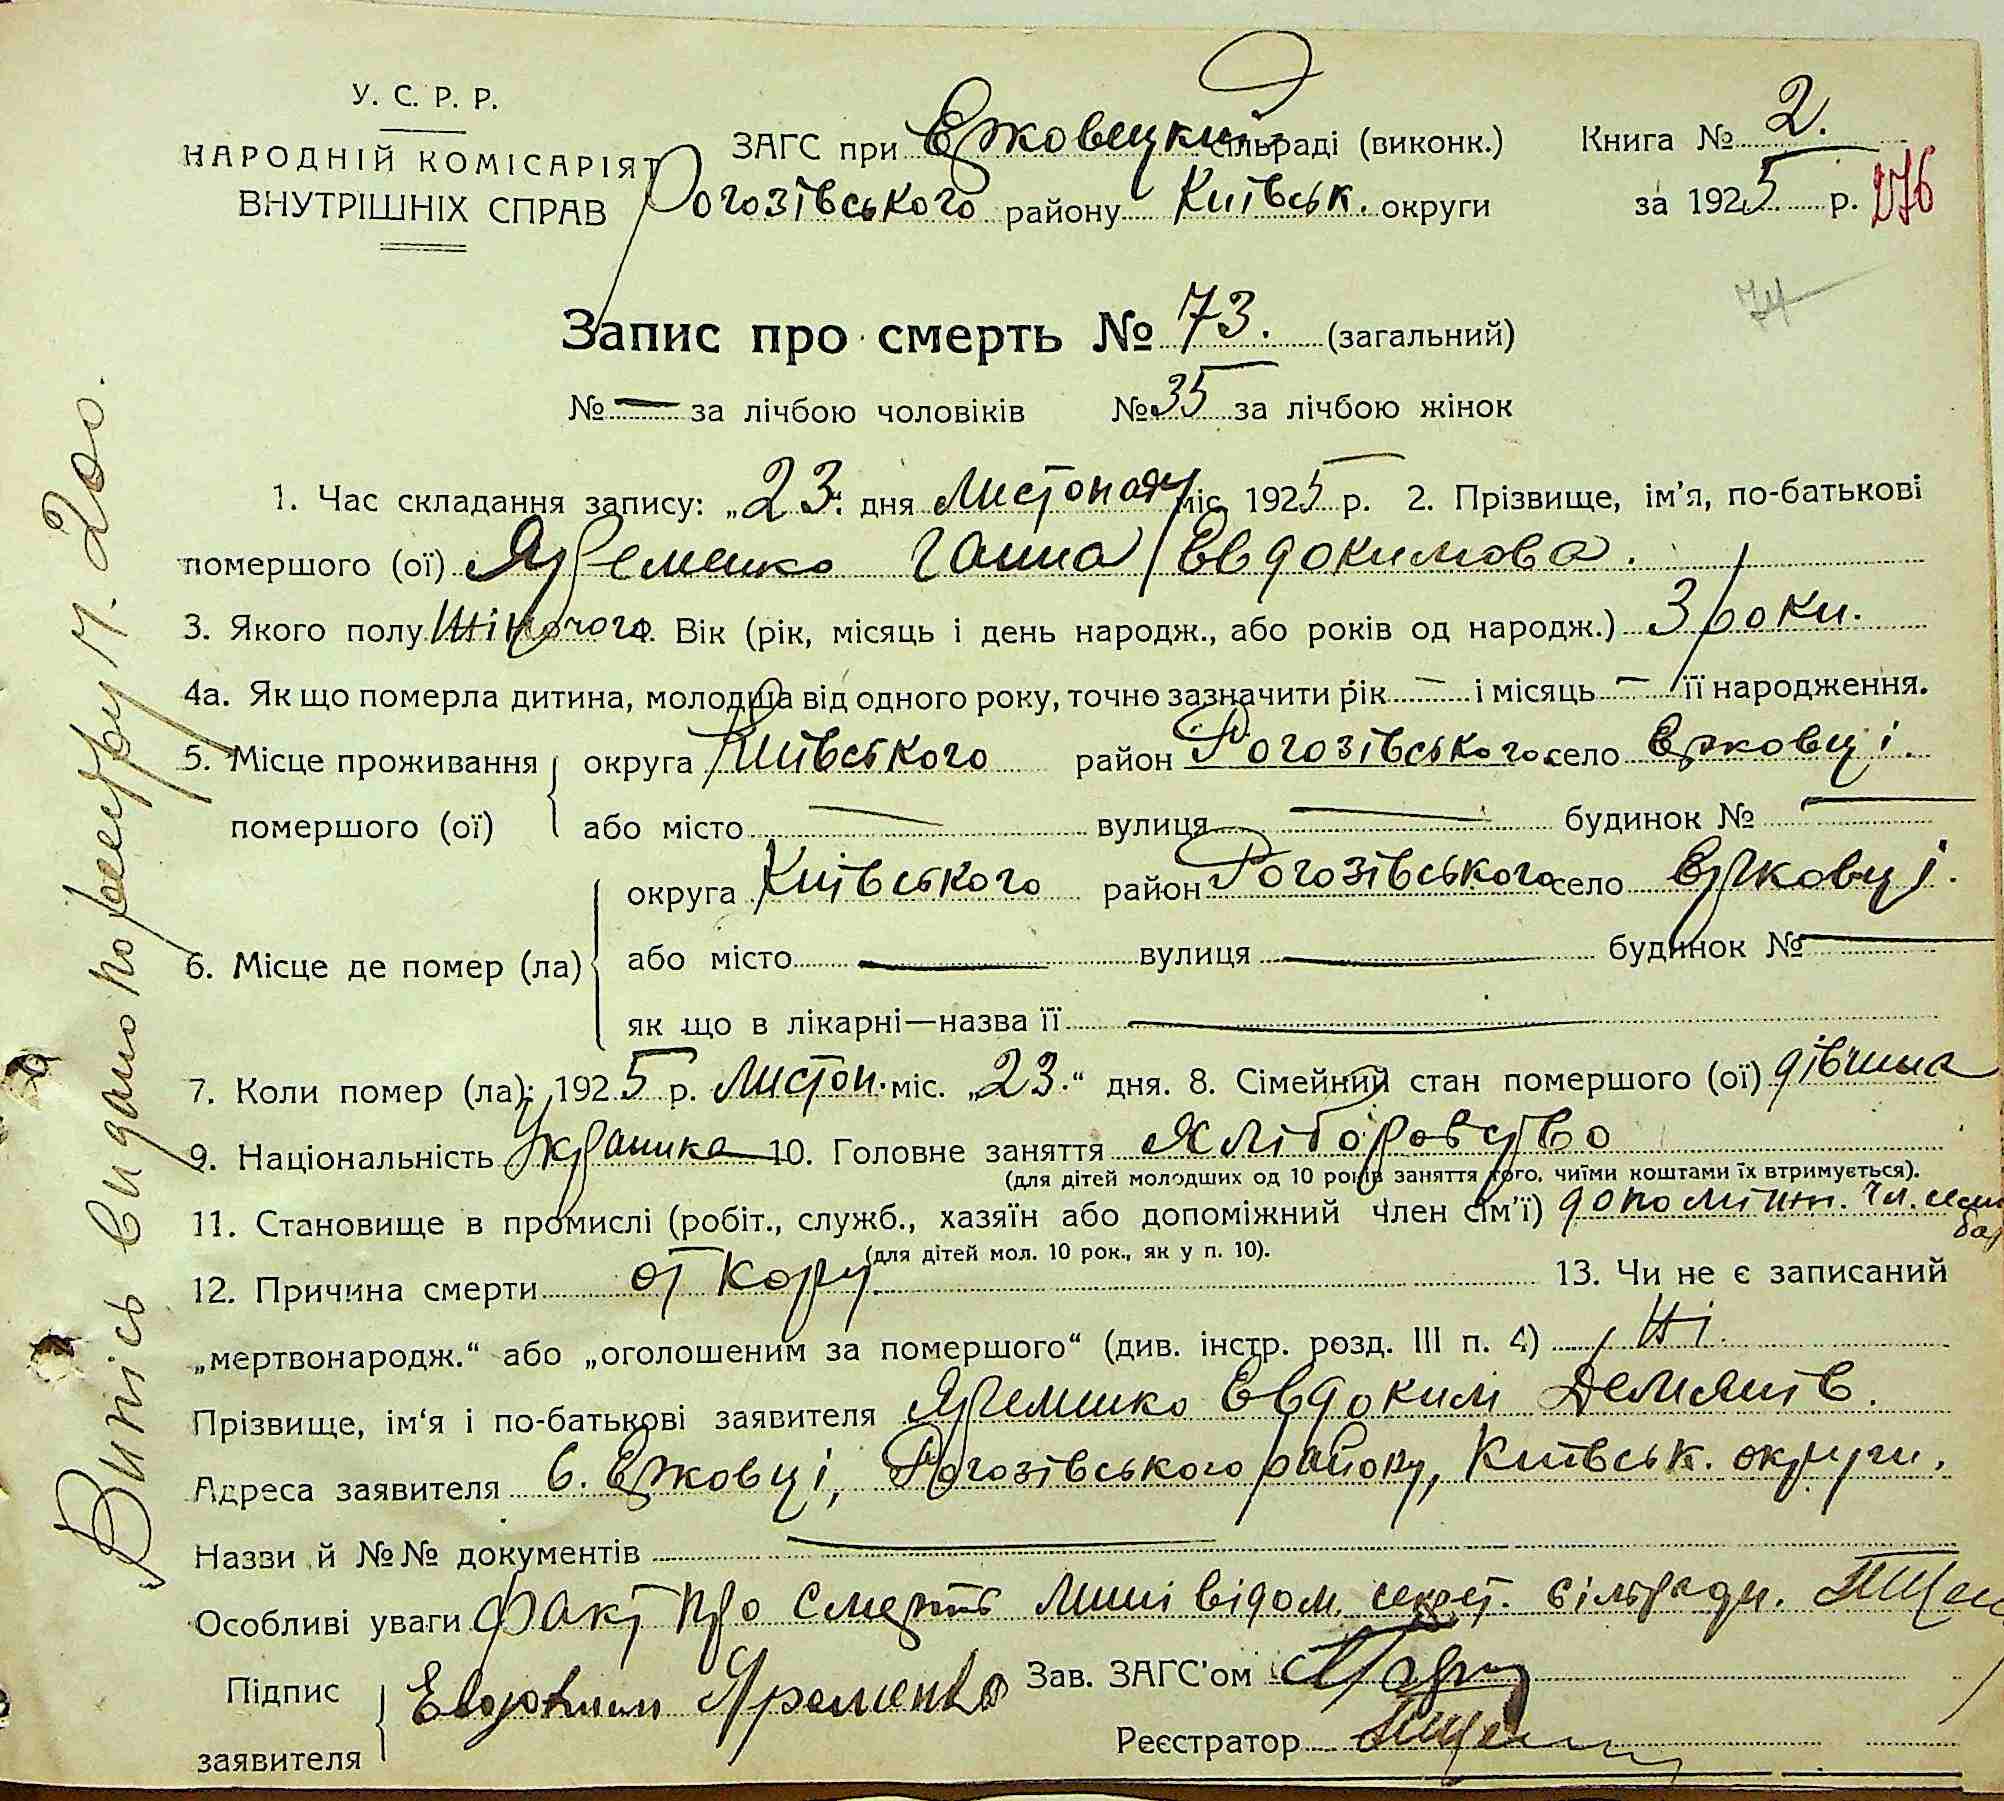 У. С. Р. Р.
НАРОДНІЙ КОМІСАРІЯТ
ВНУТРІШНІХ СПРАВ
ЗАГС при Ержовецкий сільраді (виконк.)
Рогозівського району Київськ. округи
Книга № 2.
за 1925 р. 276
74
Запис про смерть № 73. (загальний)
№ — за лічбою чоловіків № 35 за лічбою жінок
1. Час складання запису: „23“ дня Листопаду міс. 1925 р. 2. Прізвище, ім'я, по-батькові
помершого (ої) Яременко Ганна Евдокимова.
3. Якого полу жіночого. Вік (рік, місяць і день народж., або років од народж.) 3 роки.
4а. Як що померла дитина, молодша від одного року, точно зазначити рік — і місяць — її народження.
5. Місце проживання округа Київського район Рогозівського село Ержовці.
помершого (ої) або місто — вулиця — будинок № —
округа Київського район Рогозівського село Ержовці.
6. Місце де помер (ла) або місто — вулиця — будинок № —
як що в лікарні—назва її —
7. Коли помер (ла): 1925 р. Листоп. міс. „23.“ дня. 8. Сімейний стан помершого (ої) дівчина
9. Національність Украинка 10. Головне заняття Хліборобство
(для дітей молодших од 10 років заняття того, чиїми коштами їх втримується).
11. Становище в промислі (робіт., служб., хазяїн або допоміжний член сім'ї) допоміж. чл.
(для дітей мол. 10 рок., як у п. 10).
12. Причина смерти от кору. 13. Чи не є записаний
„мертвонародж.“ або „оголошеним за помершого“ (див. інстр. розд. III п. 4) Ні.
Прізвище, ім'я і по-батькові заявителя Яременко Евдоким Демянів.
Адреса заявителя с. Ержовці, Рогозівського району, Київськ. округи.
Назви й №№ документів —
Особливі уваги Факт про смерть мині відом. секрет. сільради.
Підпис
заявителя Евдоким Яременко
Зав. ЗАГС'ом
Реєстратор
Випись видано по реестру № 200.